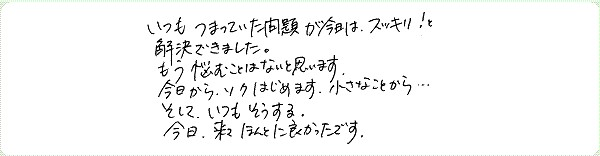 いつも つまっていた問題が今日は、スッキリ!と
解決できました。
もう悩むことはないと思います。
今日から、ソクはじめます。小さなことから…
そして、いつもそうする。
今日、来て ほんとに良かったです。